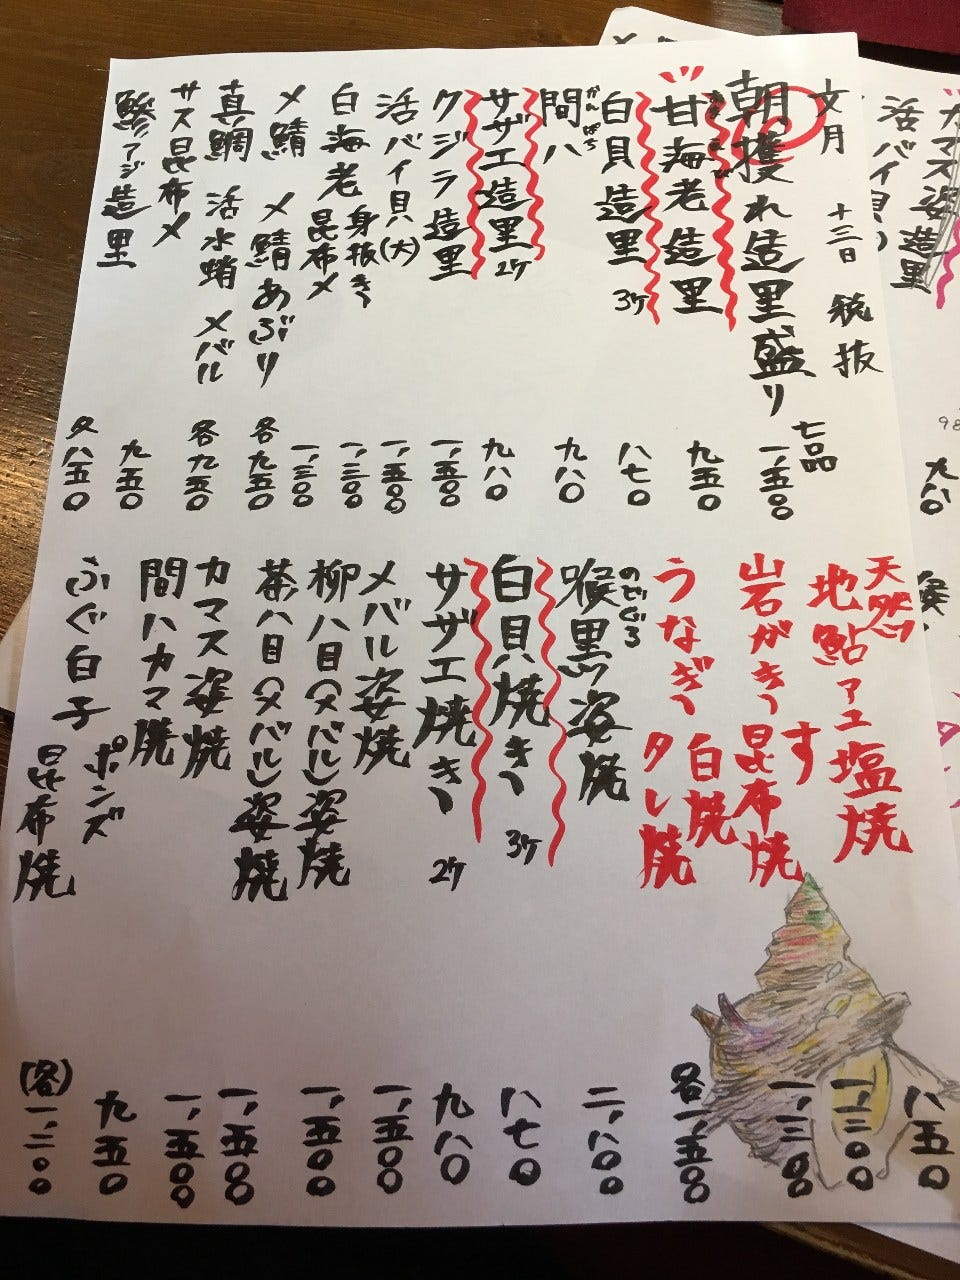 文月 十三日 税抜
朝獲れ造里盛り 七品 一、五〇〇
甘海老造里 九五〇
白貝造里 3ケ 八七〇
間八 かんぱち 九八〇
サザエ造里 2ケ 九八〇
クジラ造里 一、五〇〇
活バイ貝(大) 一、五〇〇
白海老 身抜き 一、三〇〇
昆布〆 一、三〇〇
〆鯖 〆鯖あぶり 各九五〇
真鯛 活水蛸 メバル 各九五〇
サス昆布〆 九五〇
鯵アジ造里 八五〇
天然
地鮎アユ塩焼 八五〇
す 一、三〇〇
山岩がき 昆布焼 一、三〇〇
うなぎ 白焼 タレ焼 各一、五〇
喉黒 のどぐろ 姿焼 二、八〇
白貝焼き 3ケ 八七〇
サザエ焼き 2ケ 九八〇
メバル姿焼 一、五〇〇
柳八目(メバル)姿焼 一、五〇〇
茶八目(メバル)姿焼 一、五〇〇
カマス姿焼 一、五〇〇
間八カマ焼 九五〇
ふぐ白子 ポンズ 昆布焼 (各)一、二〇〇
カマス姿造里
活バイ貝
九八〇